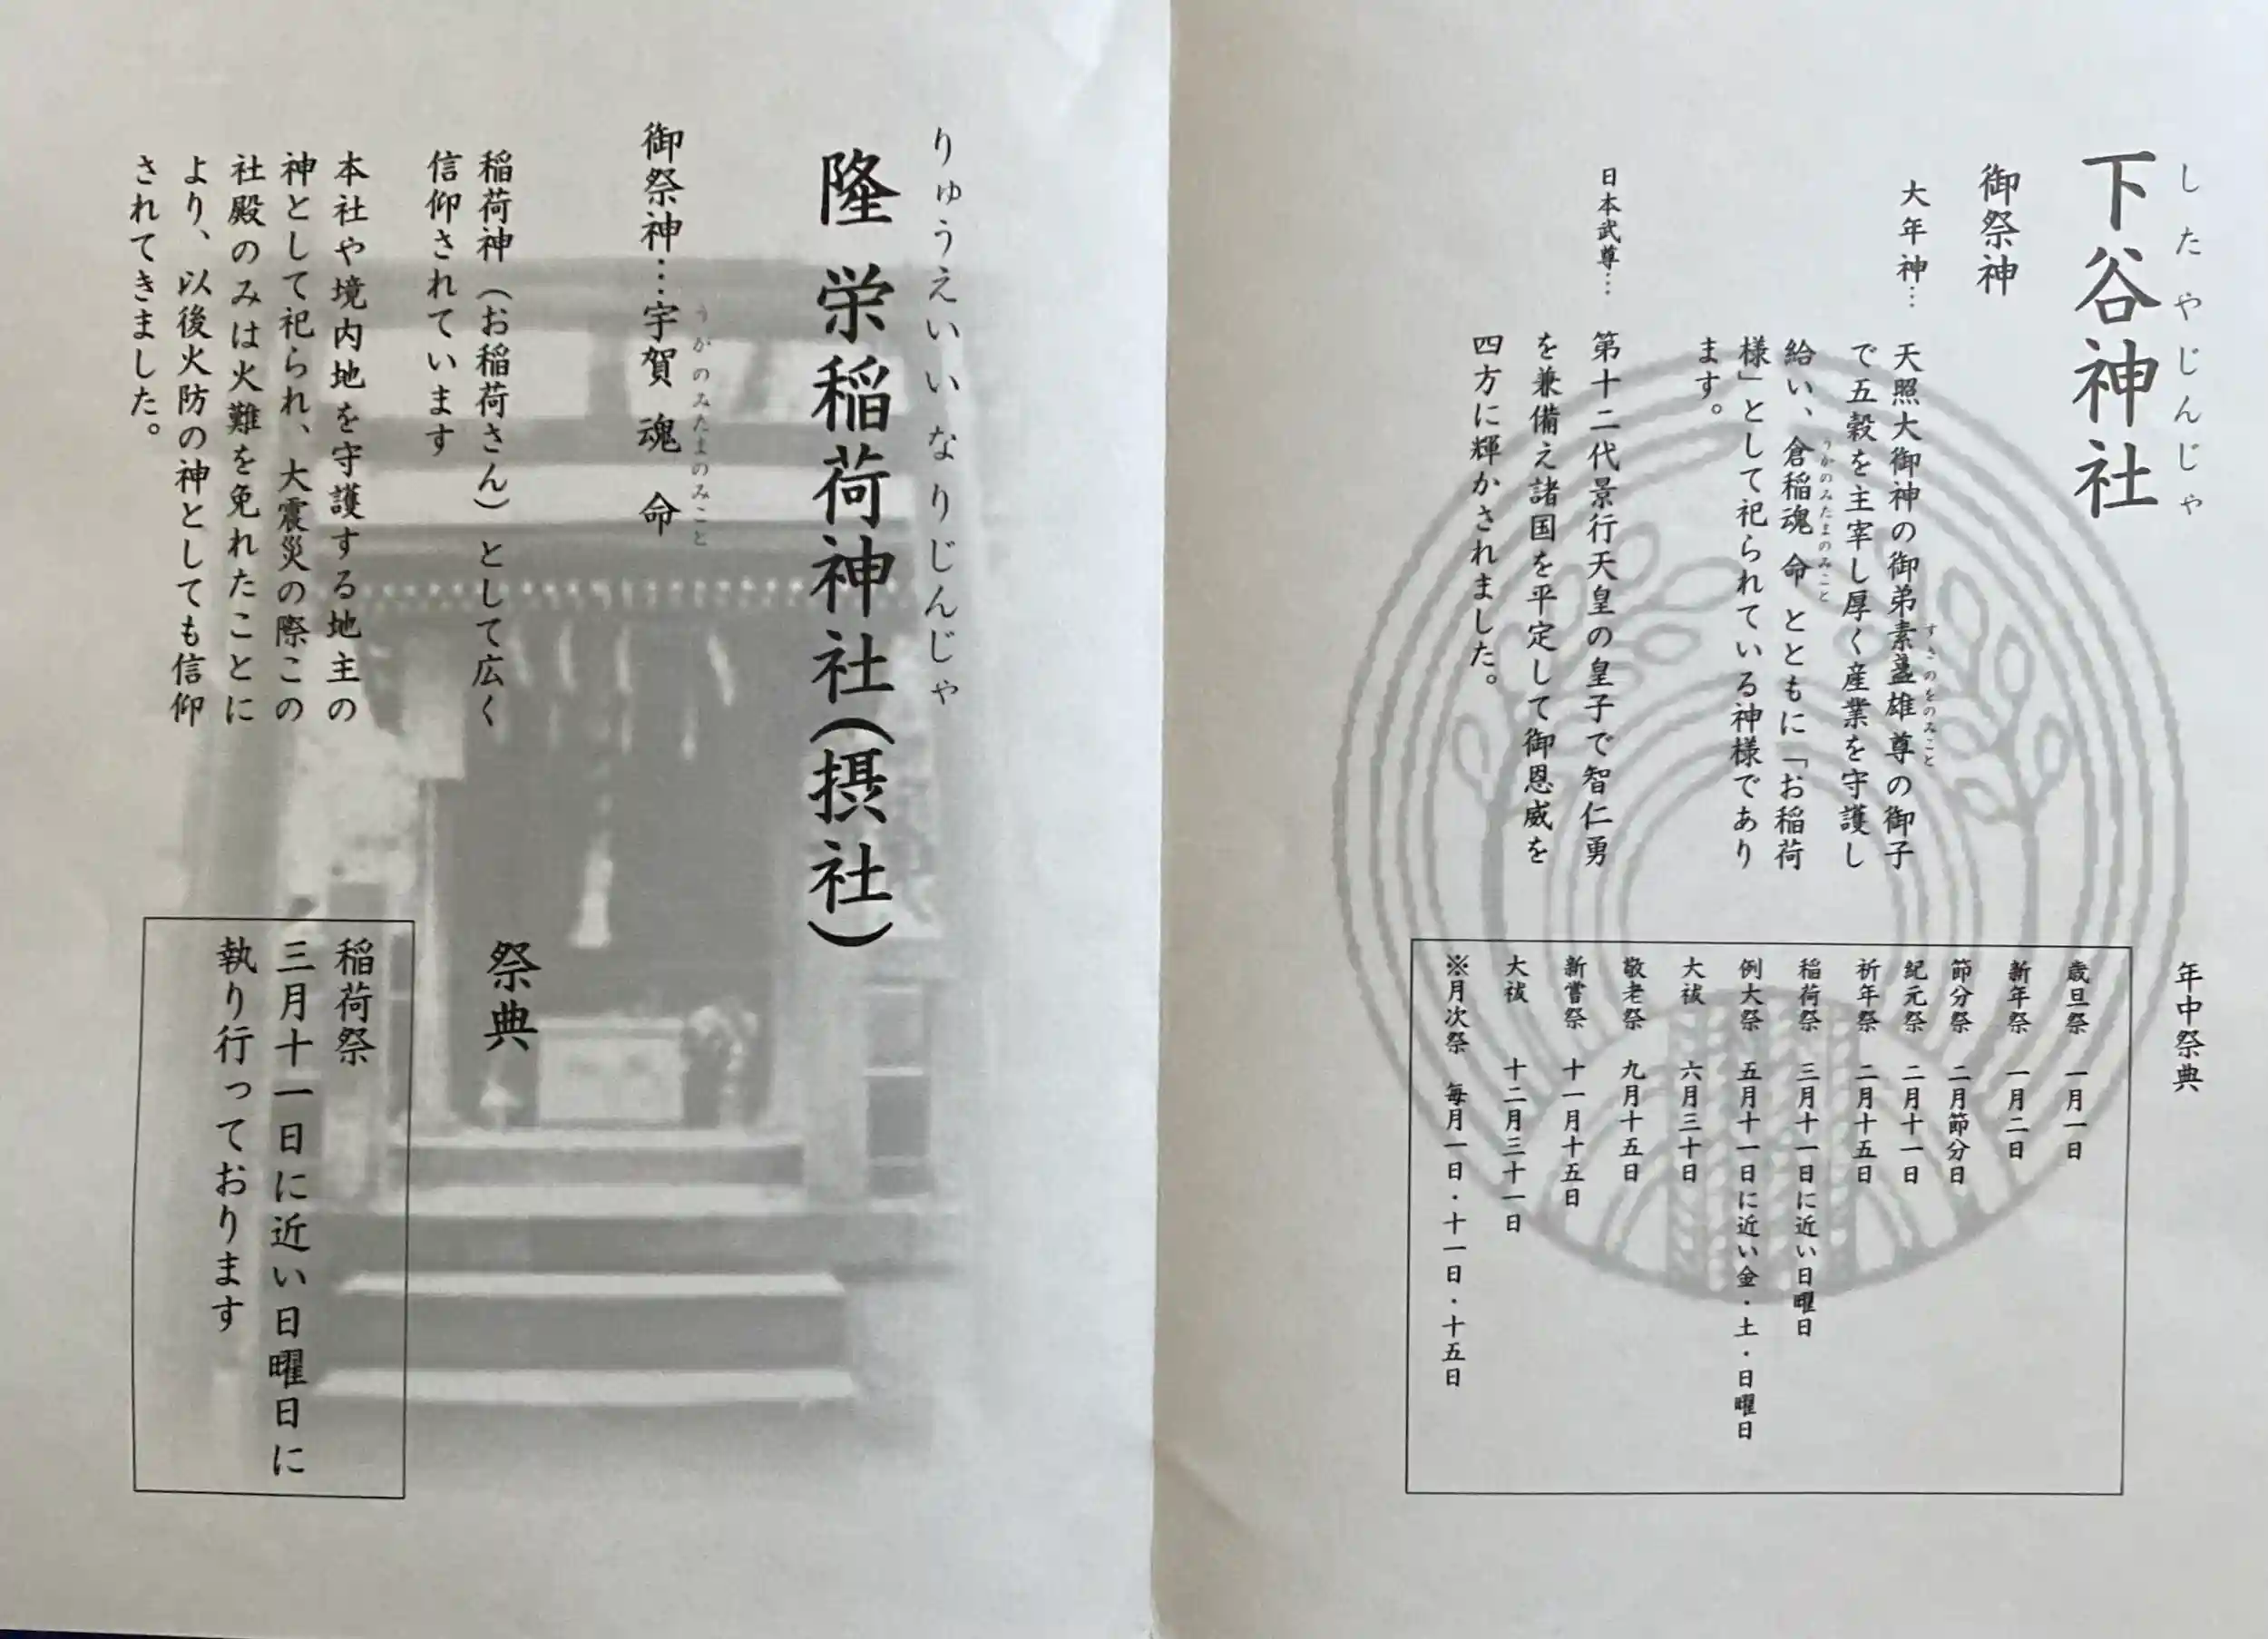 したやじんじゃ
下谷神社
御祭神
大年神… 天照大御神の御弟素盞雄尊の御子
すさのをのみこと
で五穀を主宰し厚く産業を守護し
給い、倉稲魂命とともに「お稲荷
うかのみたまのみこと
様」として祀られている神様であり
ます。
日本武尊… 第十二代景行天皇の皇子で智仁勇
を兼備え諸国を平定して御恩威を
四方に輝かされました。
年中祭典
歳旦祭 一月一日
新年祭 一月二日
節分祭 二月節分日
紀元祭 二月十一日
祈年祭 二月十五日
稲荷祭 三月十一日に近い日曜日
例大祭 五月十一日に近い金・土・日曜日
大祓 六月三十日
敬老祭 九月十五日
新嘗祭 十一月十五日
大祓 十二月三十一日
※月次祭 毎月一日・十一日・十五日
りゅうえいいなりじんじゃ
隆栄稲荷神社(摂社)
御祭神…宇賀魂命
うかのみたまのみこと
稲荷神(お稲荷さん)として広く
信仰されています
本社や境内地を守護する地主の
神として祀られ、大震災の際この
社殿のみは火難を免れたことに
より、以後火防の神としても信仰
されてきました。
祭典
稲荷祭
三月十一日に近い日曜日に
執り行っております